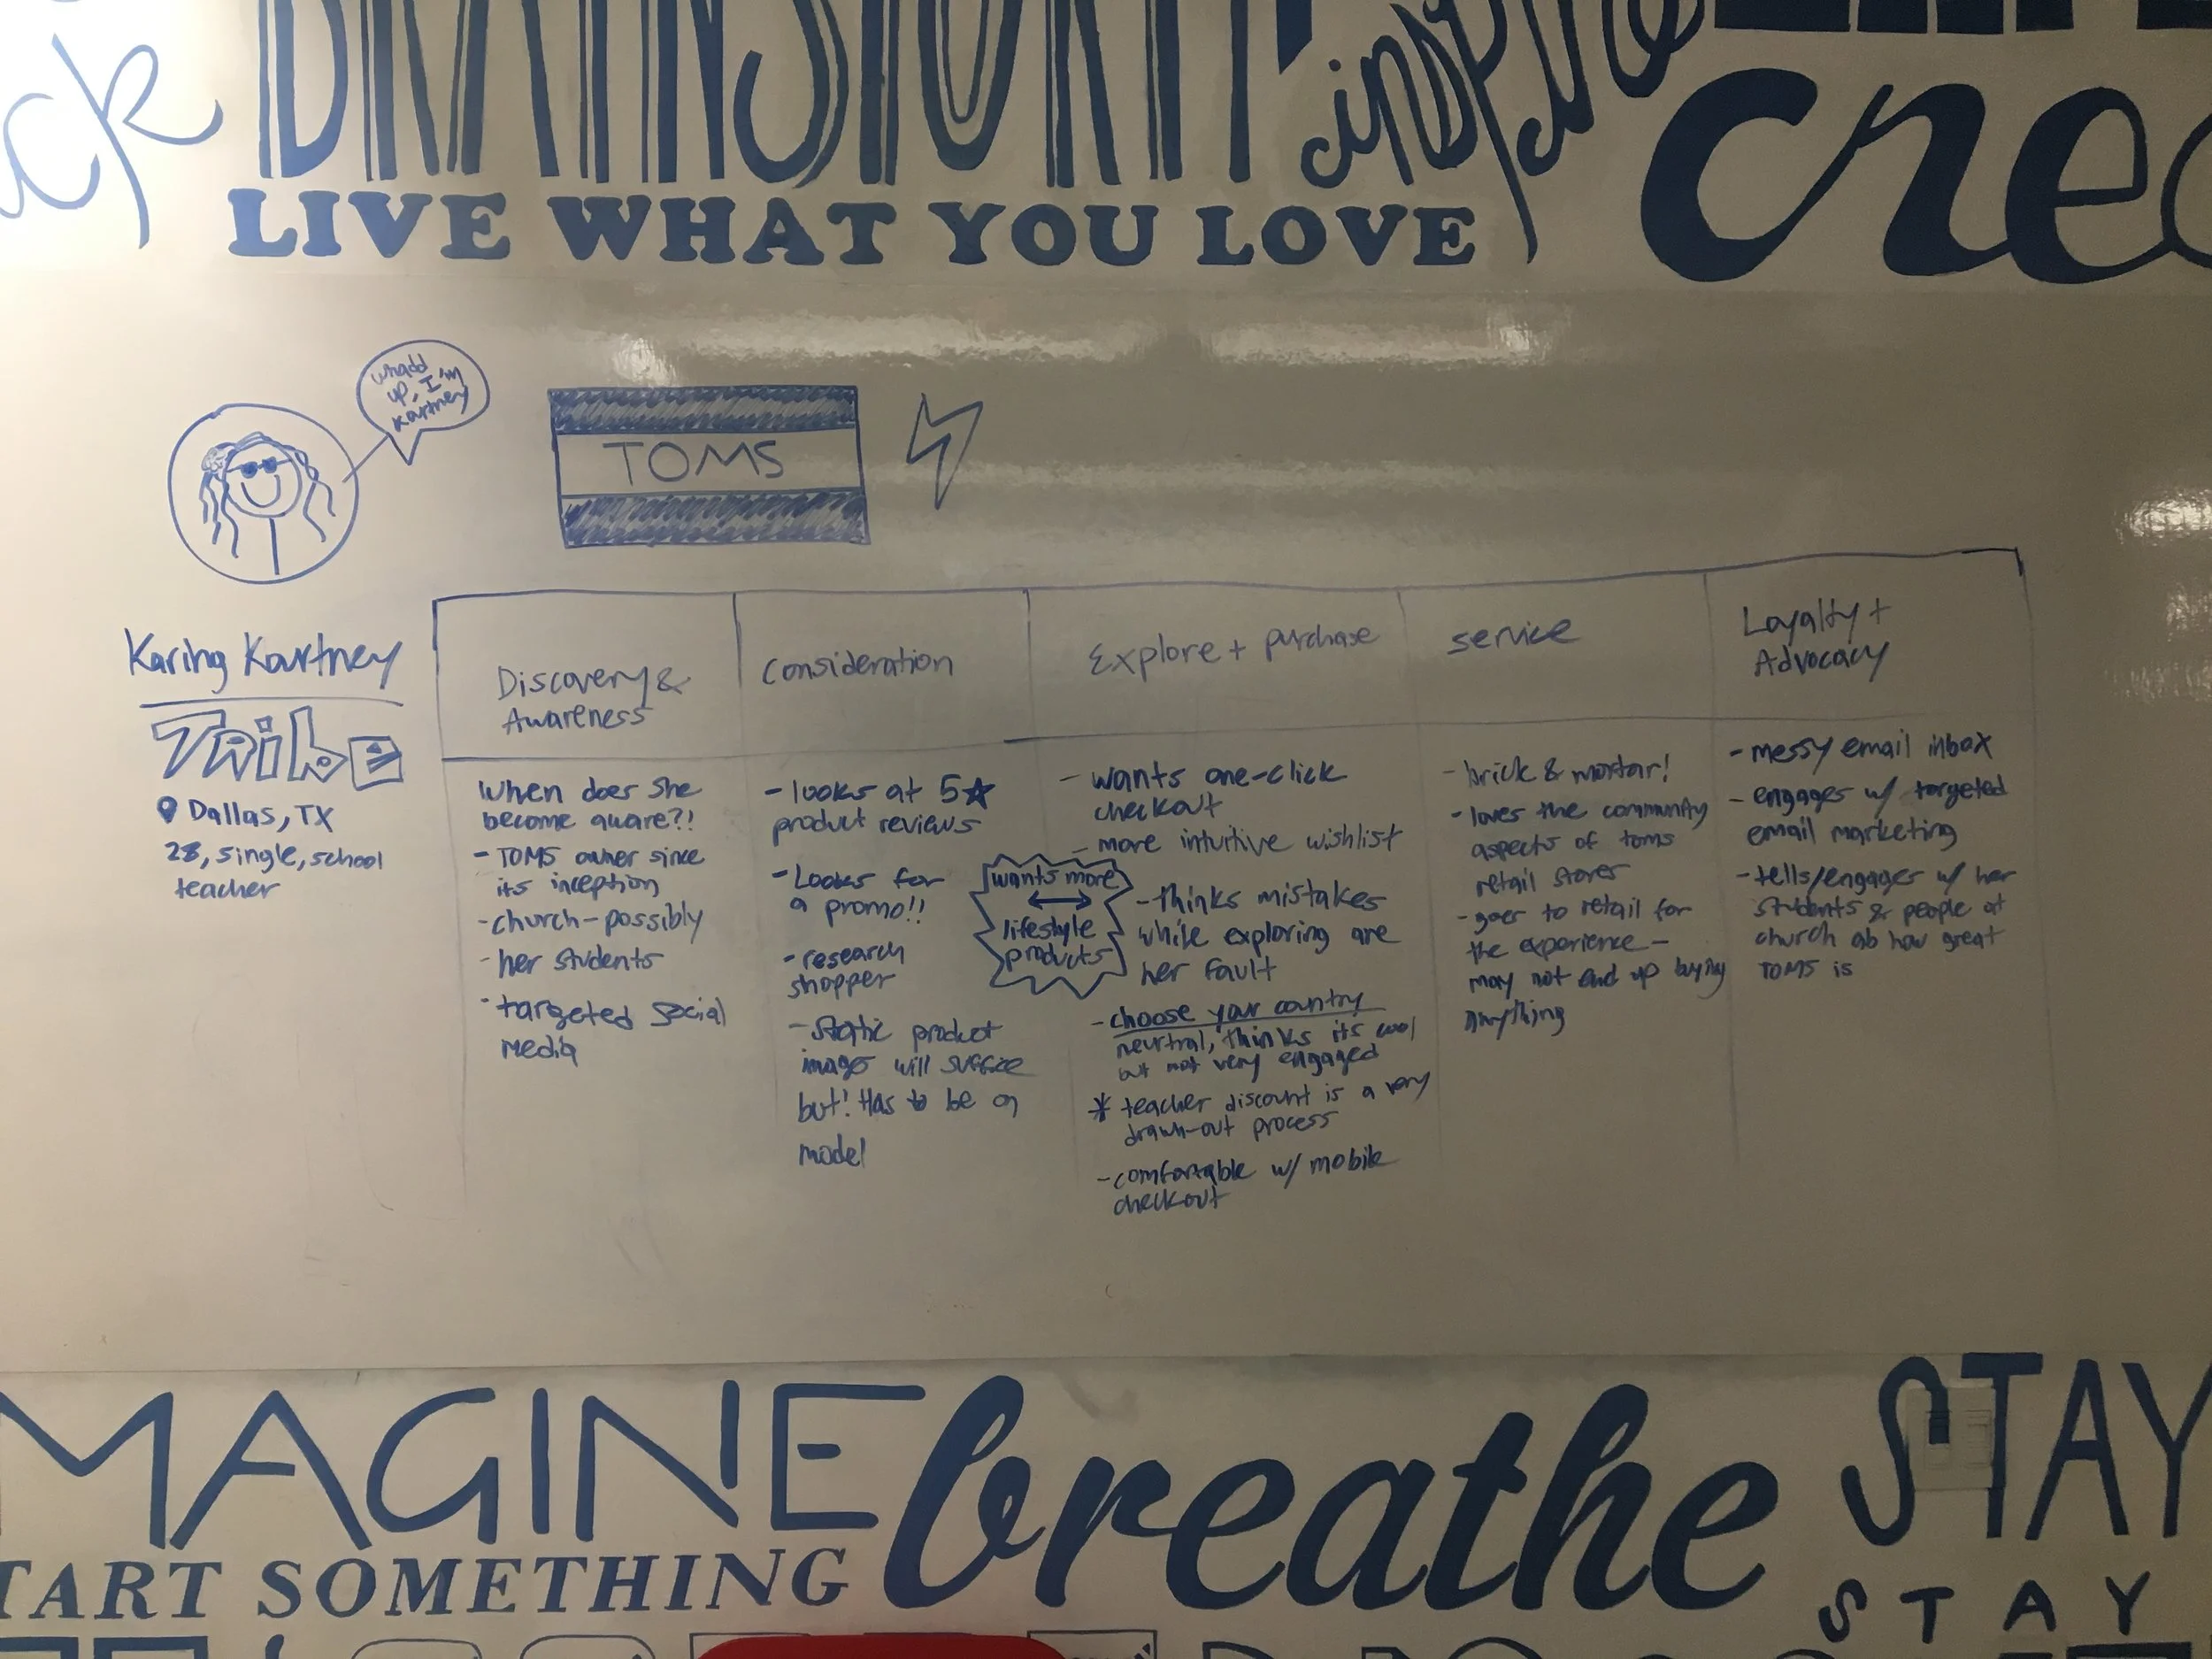 BRAINSTORM
inspire
LIVE WHAT YOU LOVE
crea
whadd
up, I'm
Kartney
TOMS
Karing Kartney
TRIBE
Dallas, TX
28, single, school
teacher
Discovery &
Awareness
When does she
become aware?!
- TOMS owner since
its inception
- church - possibly
- her students
- targeted social
media
consideration
- looks at 5☆
product reviews
- Looks for
a promo!!
- research
shopper
- static product
image will suffice
but! Has to be on
model
Explore + purchase
- wants one-click
checkout
- more intuitive wishlist
wants more
↔
lifestyle
products
- thinks mistakes
while exploring are
her fault
- choose your country
neurtral, thinks its cool
but not very engaged
* teacher discount is a very
drawn-out process
- comfortable w/ mobile
checkout
service
- brick & mortar!
- loves the community
aspects of toms
retail stores
- goes to retail for
the experience -
may not end up buying
anything
Loyalty +
Advocacy
- messy email inbox
- engages w/ targeted
email marketing
- tells/engages w/ her
students & people at
church ab how great
TOMS is
MAGINE
breathe
STAY
TART SOMETHING
STAY